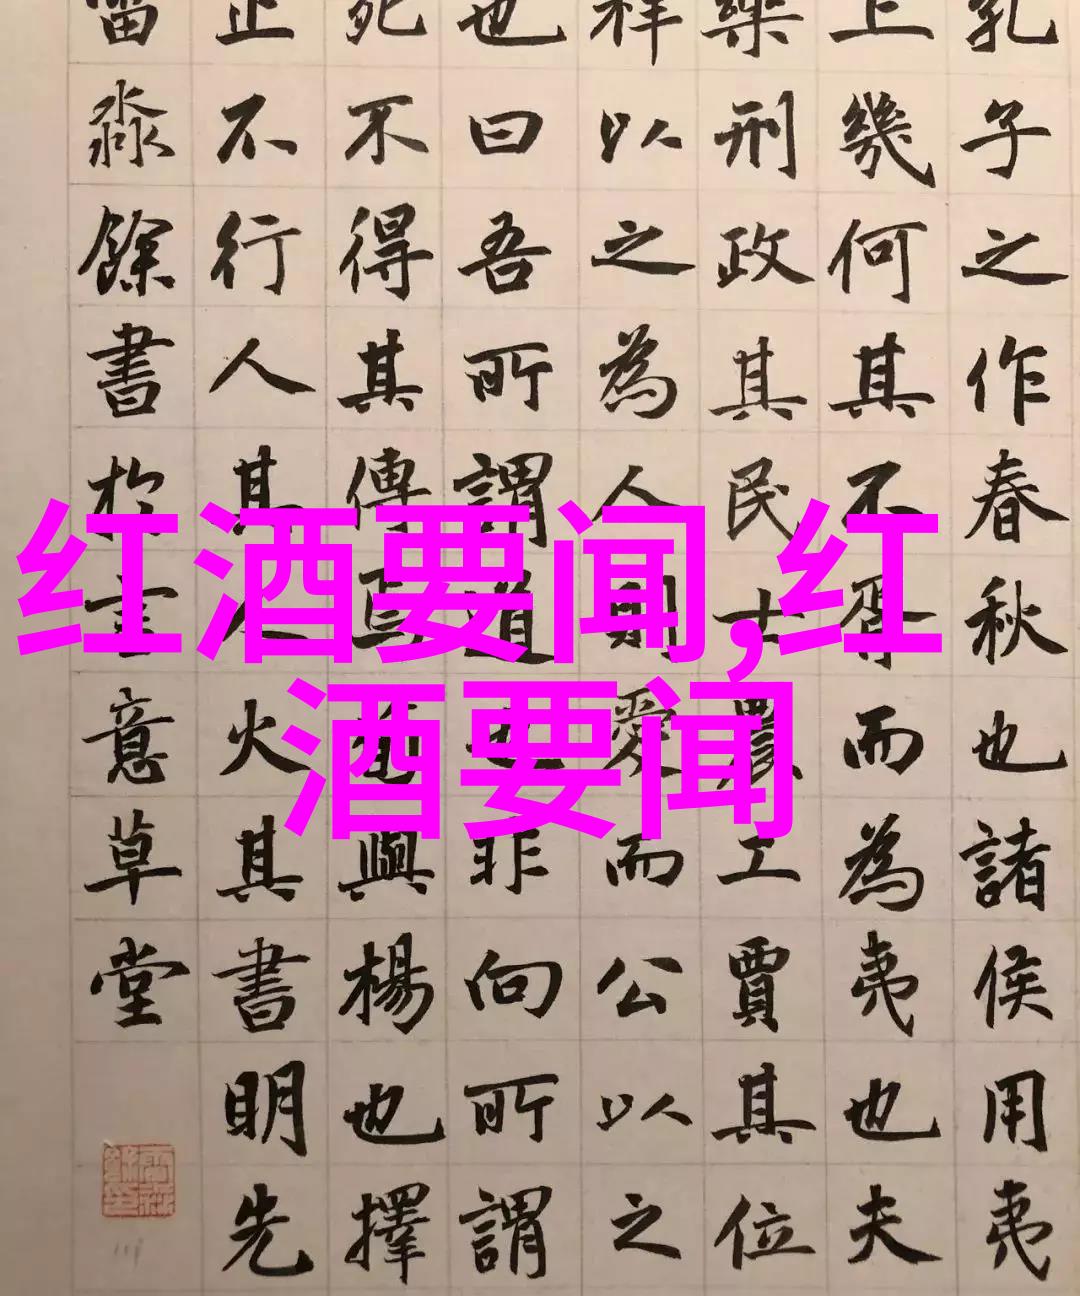 红酒要闻,红
酒要闻
孔子之作春秋也諸侯用夷
上幾何其不胥而為夷也夫
樂刑政其民士農工賈其位
祥以之為人則愛而公以之
也曰吾所謂道也非向所謂
死不得其傳焉荀與楊也擇
止不行人其人火其書明先
淼餘書於意草堂